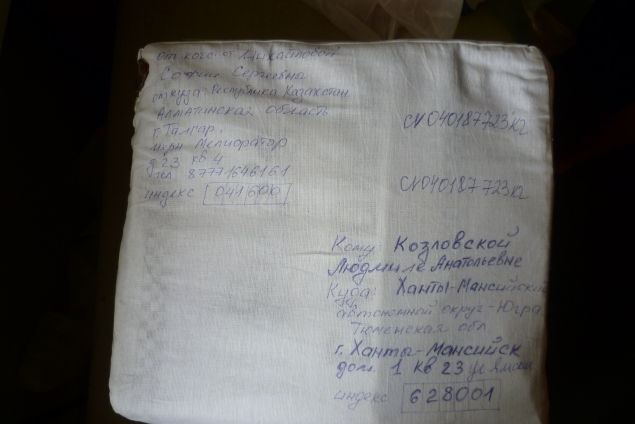 от кого: от
Софии Сергеевны
откуда: Республика Казахстан
Алматинская область
г. Талгар,
мкрн Мелиоратор
д 23 кв 4
тел 87771646161
индекс 041600
CV040187723KZ
CV040187723KZ
Кому: Козловской
Людмиле Анатольевне
Куда: Ханты-Мансийский
автономный округ-Югра
Тюменская обл
г. Ханты-Мансийск
дом 1 кв 23 ул
индекс 628001